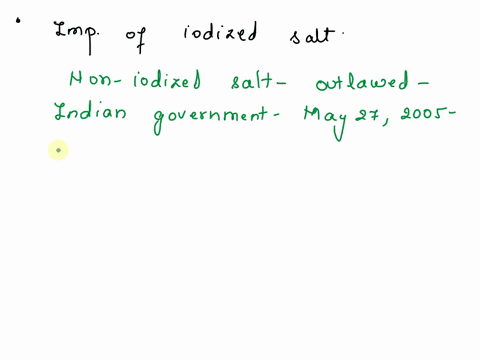 Imp. of iodized salt.
Non-iodized salt- outlawed-
Indian government- May 27, 2005-